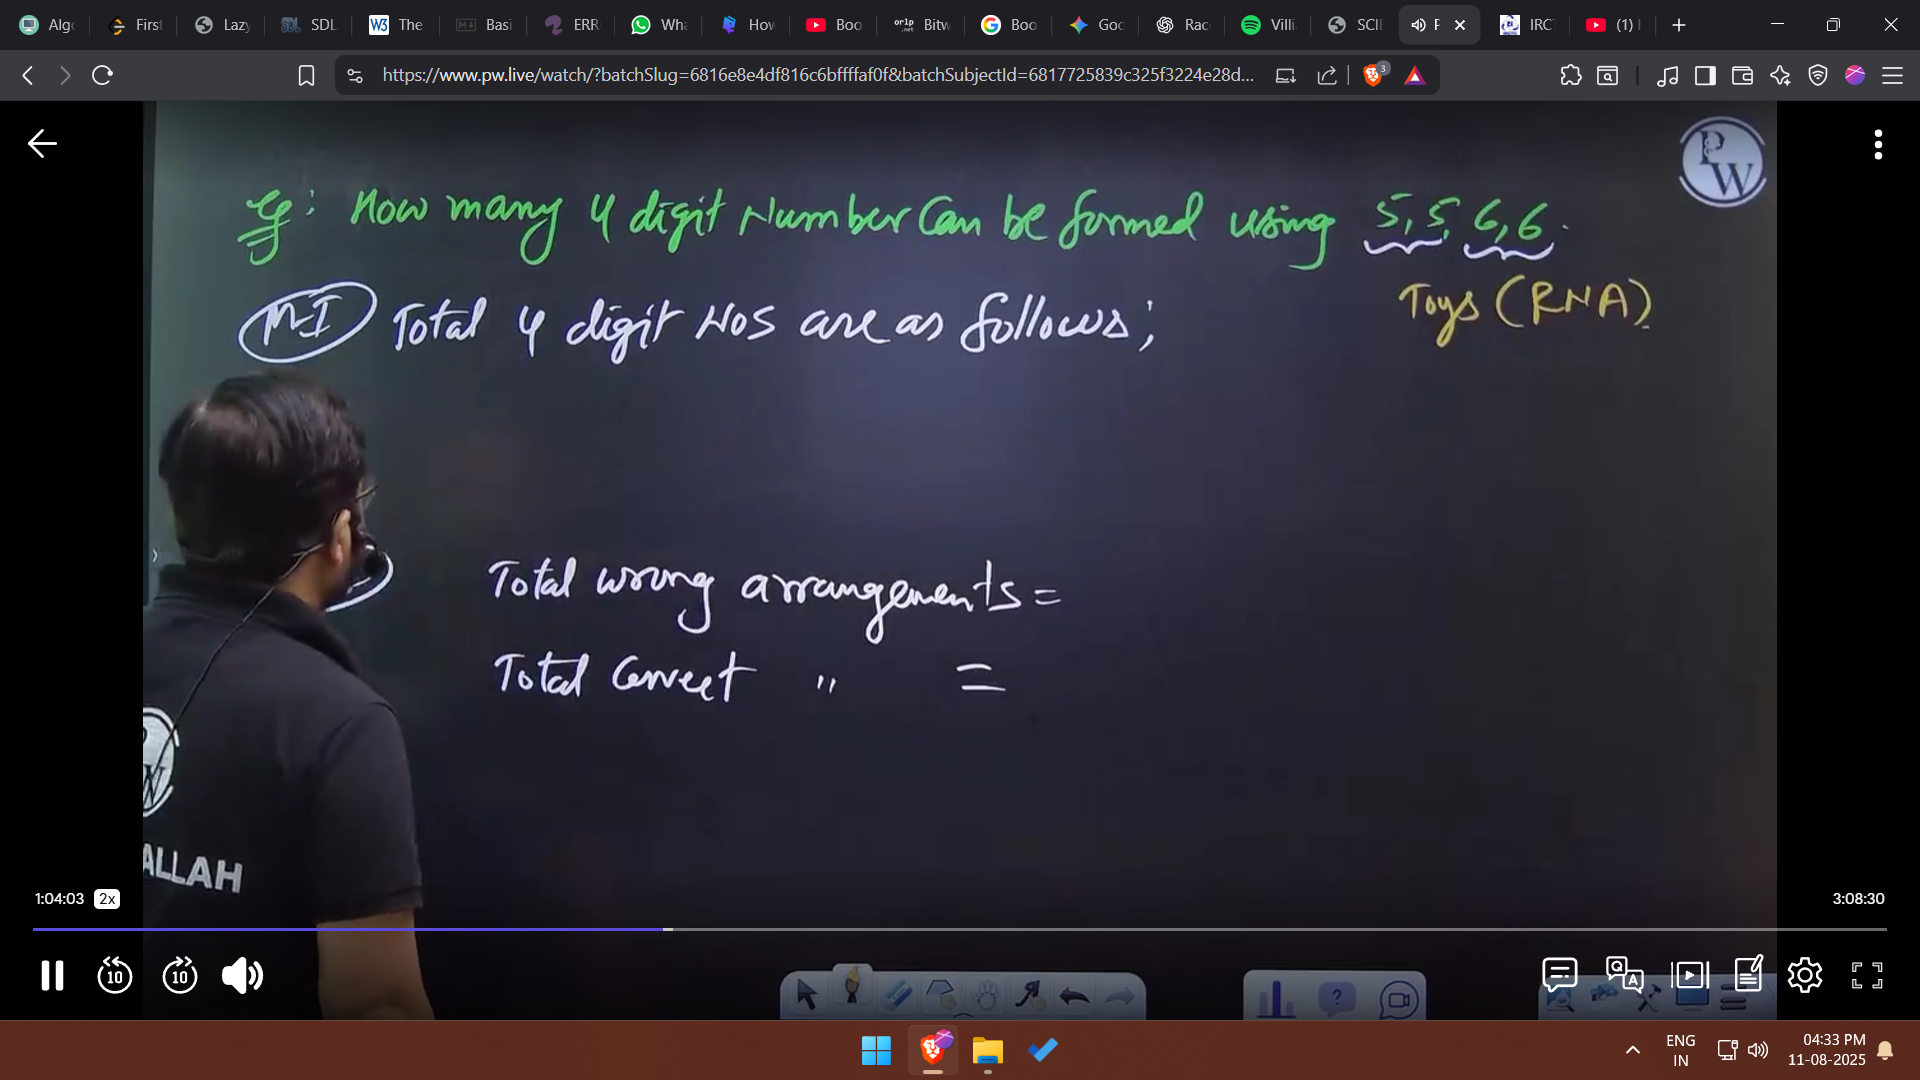 Algo
First
Lazy
SDL
The
Basi
ERR
Wha
How
Boo
orlp .net
Bitw
Boo
Goo
Rac
Villi
SCIE
IRCT
(1)
https://www.pw.live/watch/?batchSlug=6816e8e4df816c6bffffaf0f&batchSubjectId=6817725839c325f3224e28d...
3
PW
Eg: How many 4 digit Number Can be formed using 5,5,6,6.
Toys (RNA)
M-I Total 4 digit Nos are as follows;
Total wrong arrangements =
Total Correct " =
W
ALLAH
1:04:03 2x
3:08:30
10 10
ENG
IN
04:33 PM
11-08-2025